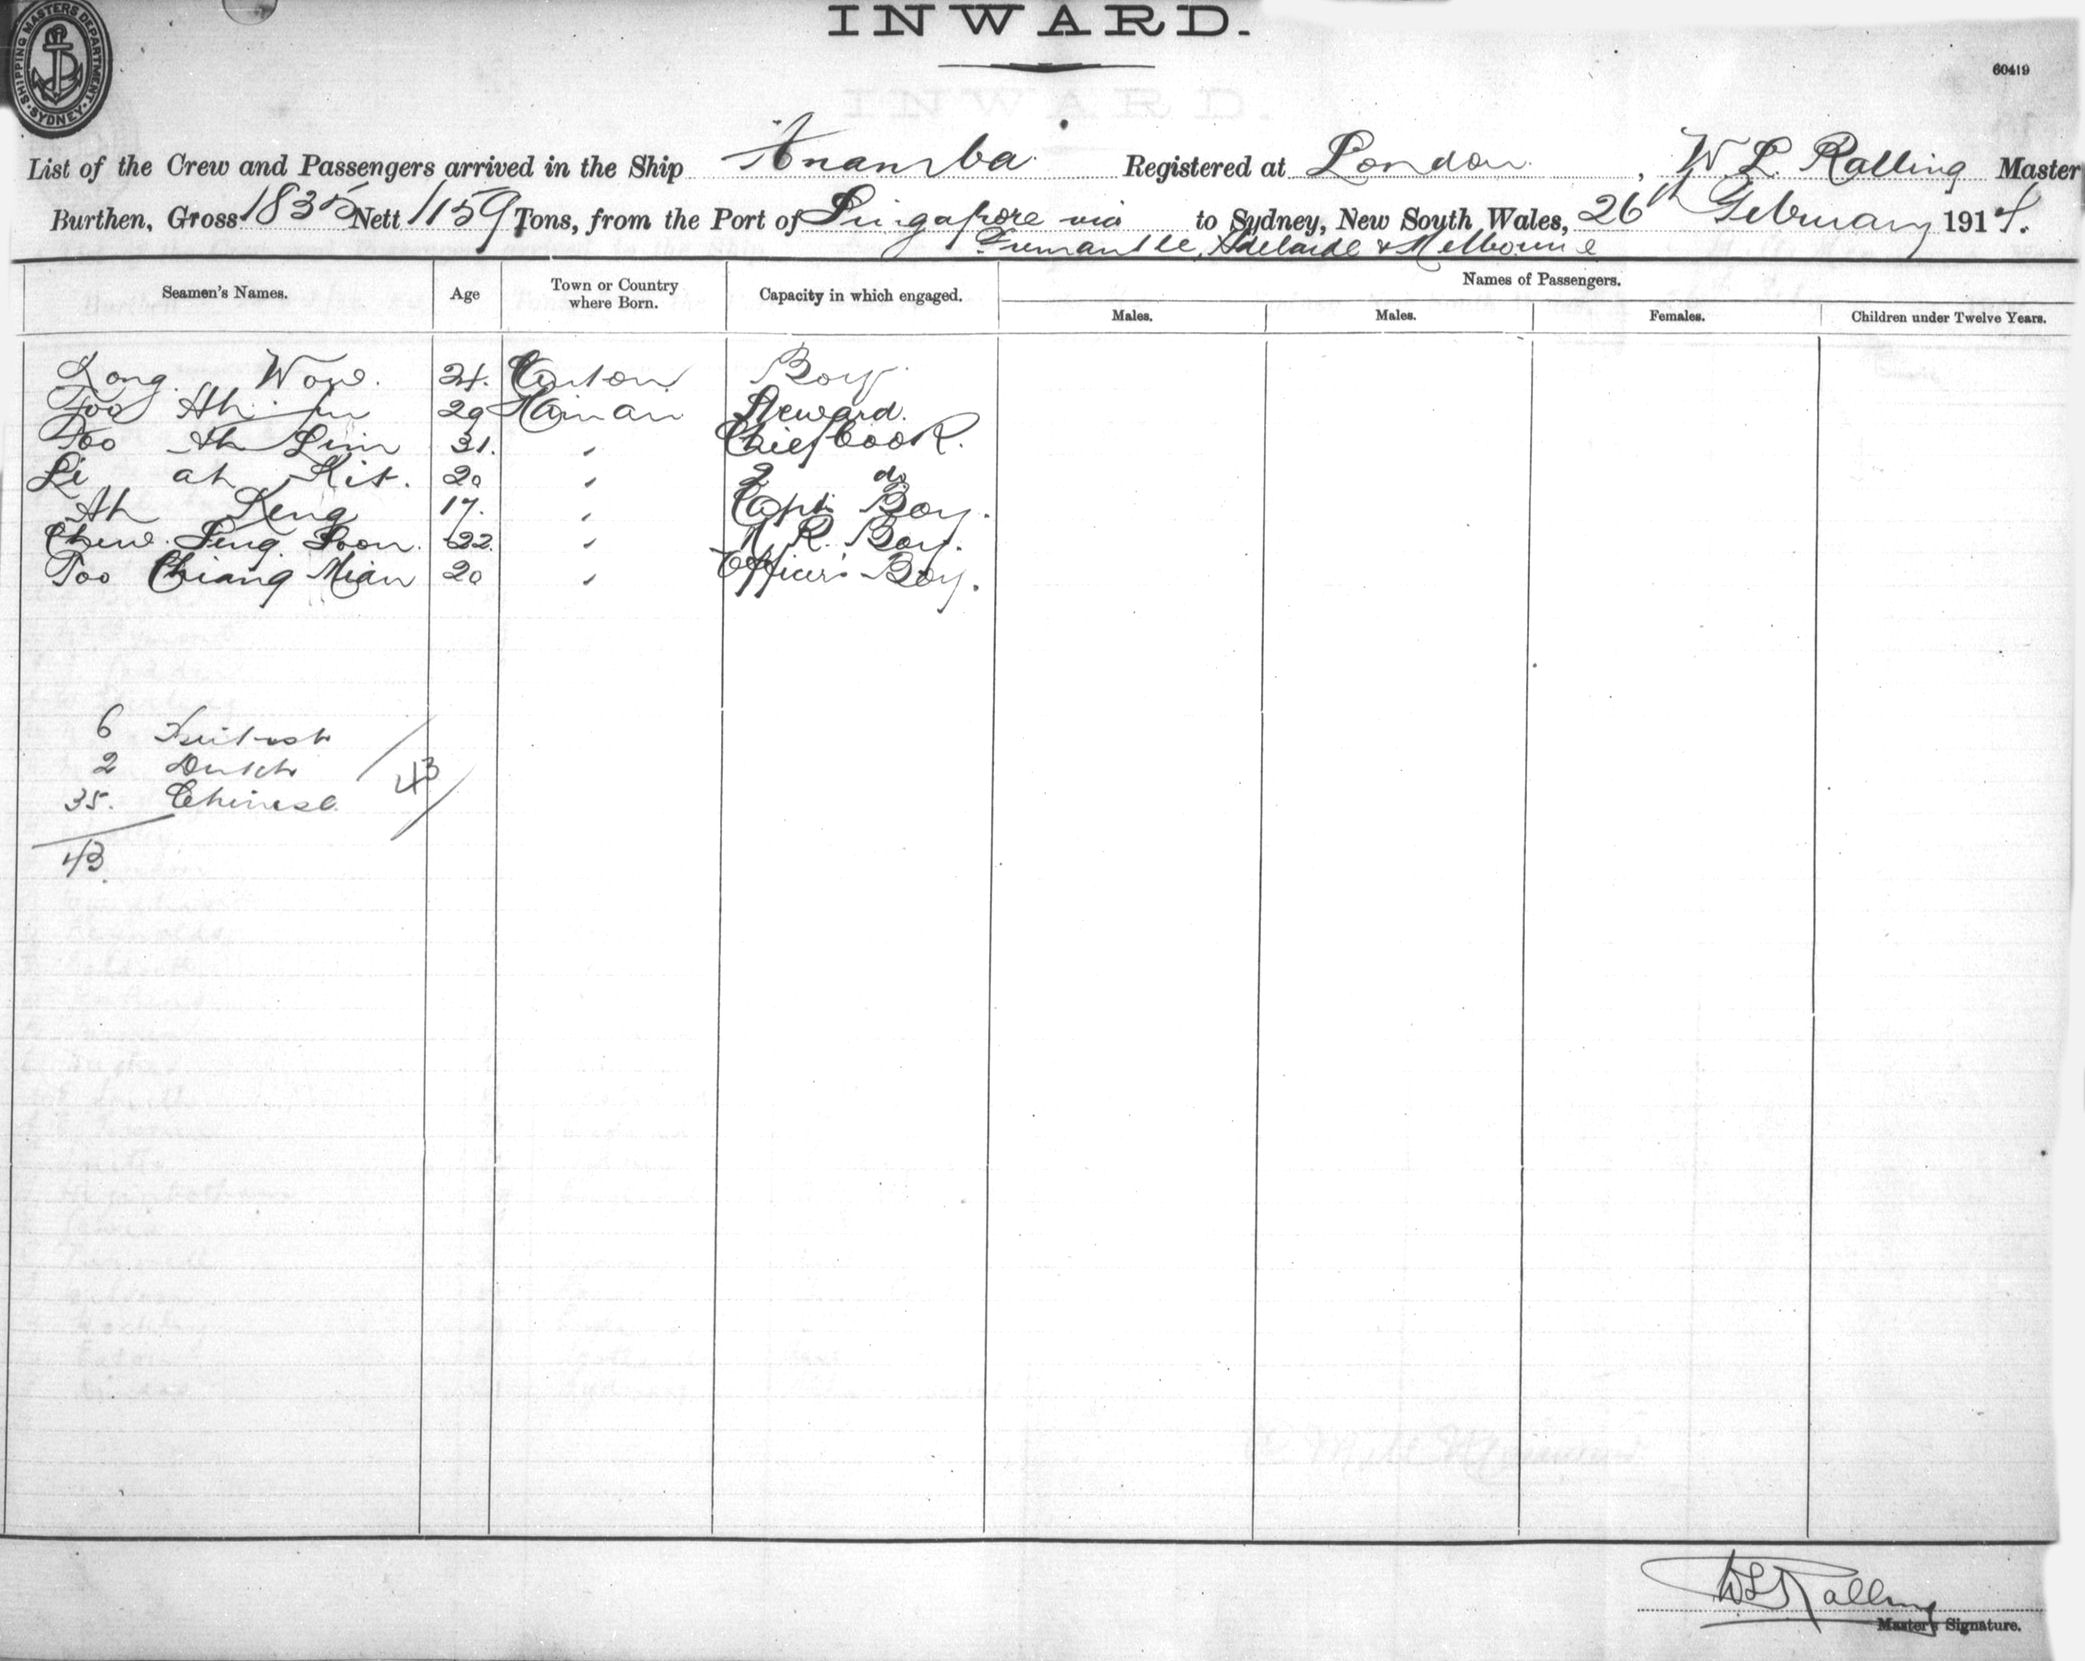 INWARD.
SHIPPING MASTERS DEPARTMENT. SYDNEY
60419
List of the Crew and Passengers arrived in the Ship Anamba Registered at London, W. L. Ralling Master
Burthen, Gross 1835 Nett 1159 Tons, from the Port of Singapore via to Sydney, New South Wales, 26th February 1914.
Fremantle, Adelaide & Melbourne
Names of Passengers.
Seamen's Names. Age Town or Country where Born. Capacity in which engaged. Males. Males. Females. Children under Twelve Years.
Kong Wow. 24. Canton Boy.
Foo Ah Jin 29 Hainan Steward.
Foo Ah Lim 31. " Chief Cook.
Li ah Kit. 20 " 2 do
Ah Keng 17. " Capt. Boy.
Chew Seng Soon. 22. " R. Boy.
Foo Chiang Mian 20 " Officers Boy.
6 British
2 Dutch
35. Chinese 43
43.
W L Ralling
Master's Signature.